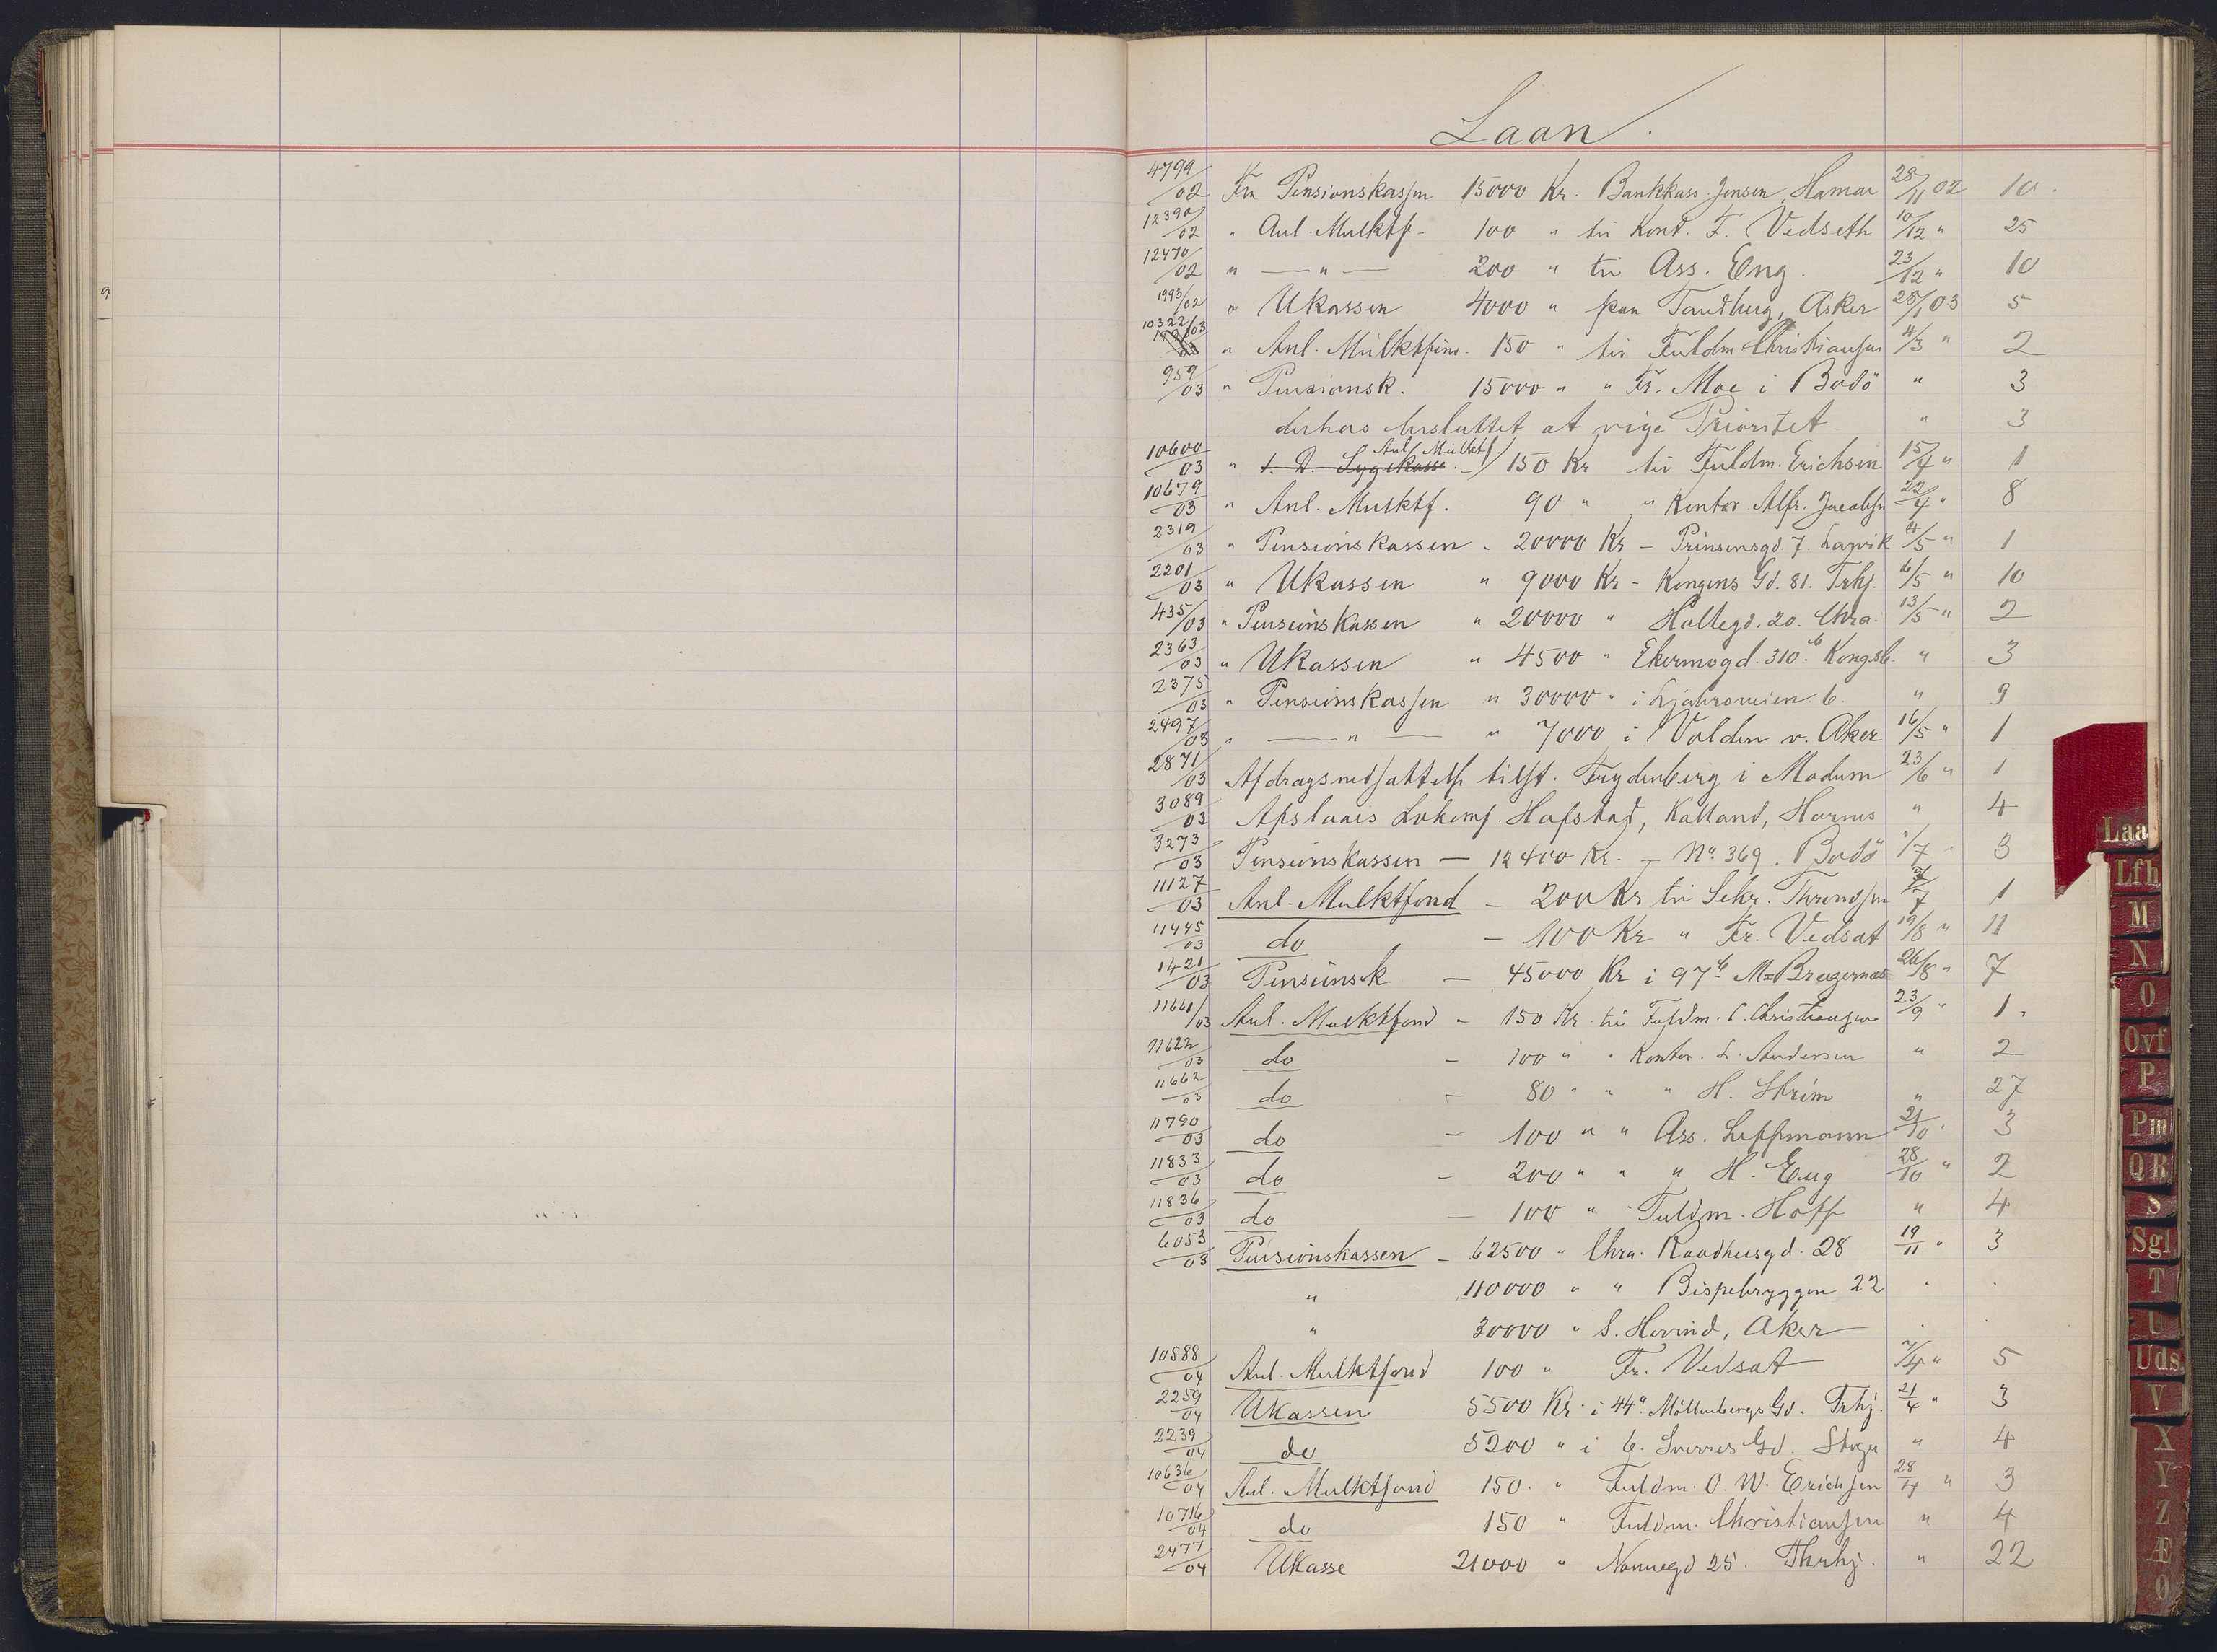 Laan.
4799/02 Fra Pensionskassen 15000 Kr. Bankkass. Jensen, Hamar 28/11 02 10.
12390/02 " Anl. Mulktf. 100 " til Kont. F. Vedseth 10/12 " 25
12470/02 " — " — 200 " til Ass. Eng. 23/12 " 10
1993/02 " Ukassen 4000 " paa Tandberg, Asker 28/1 03 5
10322/03 " Anl. Mulktf. 150 " til Fuldm Christiansen 4/3 " 2
959/03 " Pensionsk. 15000 " " Fr. Moe i Bodö " 3
derhos besluttet at vige Prioritet " 3
10600/03 " t. D. Sygekasse Anl. Mulktf. 150 Kr til Fuldm. Erichsen 15/4 " 1
10679/03 " Anl. Mulktf. 90 " " Kontor. Alfr. Jacobsen 22/4 " 8
2319/03 " Pensionskassen - 20000 Kr - Prinsensgd. 7. Larvik 4/5 " 1
2201/03 " Ukassen " 9000 Kr - Kongens Gd. 81. Trhj. 6/5 " 10
435/03 " Pensionskassen " 20000 " Holtegd. 20. Chra. 13/5 " 2
2363/03 " Ukassen " 4500 " 310 b Kongsb. " 3
2375/03 " Pensionskassen " 30000 " i Ljabroveien 6. " 9
2497/03 " — " — " 7000 i Volden v. Aker 16/5 " 1
2871/03 Afdragsnedsættelse tilst. Frydenberg i Modum 23/6 " 1
3089/03 Afslaaes Lokomf. Hofstad, Kalland, Hornes " 4
3273/03 Pensionskassen — 12400 Kr. - No. 369. Bodö 1/7 " 3
11127/03 Anl. Mulktfond - 200 Kr til Sekr. Throndsen 7/7 1
11445/03 do - 100 Kr " Fr. Vedsat 19/8 " 11
1421/03 Pensionsk — 45000 Kr i 97 b M= Bragernæs 26/8 " 7
11661/03 Anl. Mulktfond - 150 Kr. til Fuldm. C. Christiansen 23/9 " 1.
11622/03 do - 100 " " Kontor. L. Andersen " 2
11662/03 do - 80 " " " H. Strøm " 27
11790/03 do - 100 " " Ass. Leffmann 21/10 " 3
11833/03 do - 200 " " " H. Eng 28/10 " 2
11836/03 do — 100 " " Fuldm. Hoff " 4
6053/03 Pensionskassen - 62500 " Chra. Raadhusgd. 28 19/11 " 3
" 110000 " " Bispebryggen 22 " .
" 30000 " S. Hovind, Aker . .
10588/04 Anl. Mulktfond 100 " Fr. Vedsat 7/4 " 5
2259/04 Ukassen 5500 Kr. i 44a Möllenbergs Gd. Trhj. 21/4 " 3
2239/04 do 5200 " i 6. Sverres Gd. " 4
10636/04 Anl. Mulktfond 150. " Fuldm. O. W. Erichsen 28/4 " 3
10716/04 do 150 " Fuldm. Christiansen " 4
2477/04 Ukasse 21000 " Nonnegd 25. Thrhj. " 22
Laa
Lfh
M
N
O
Ovf
P
Pm
QR
S
Sgl
T
U
Uds
V
X
Y
Z
Æ
Ø